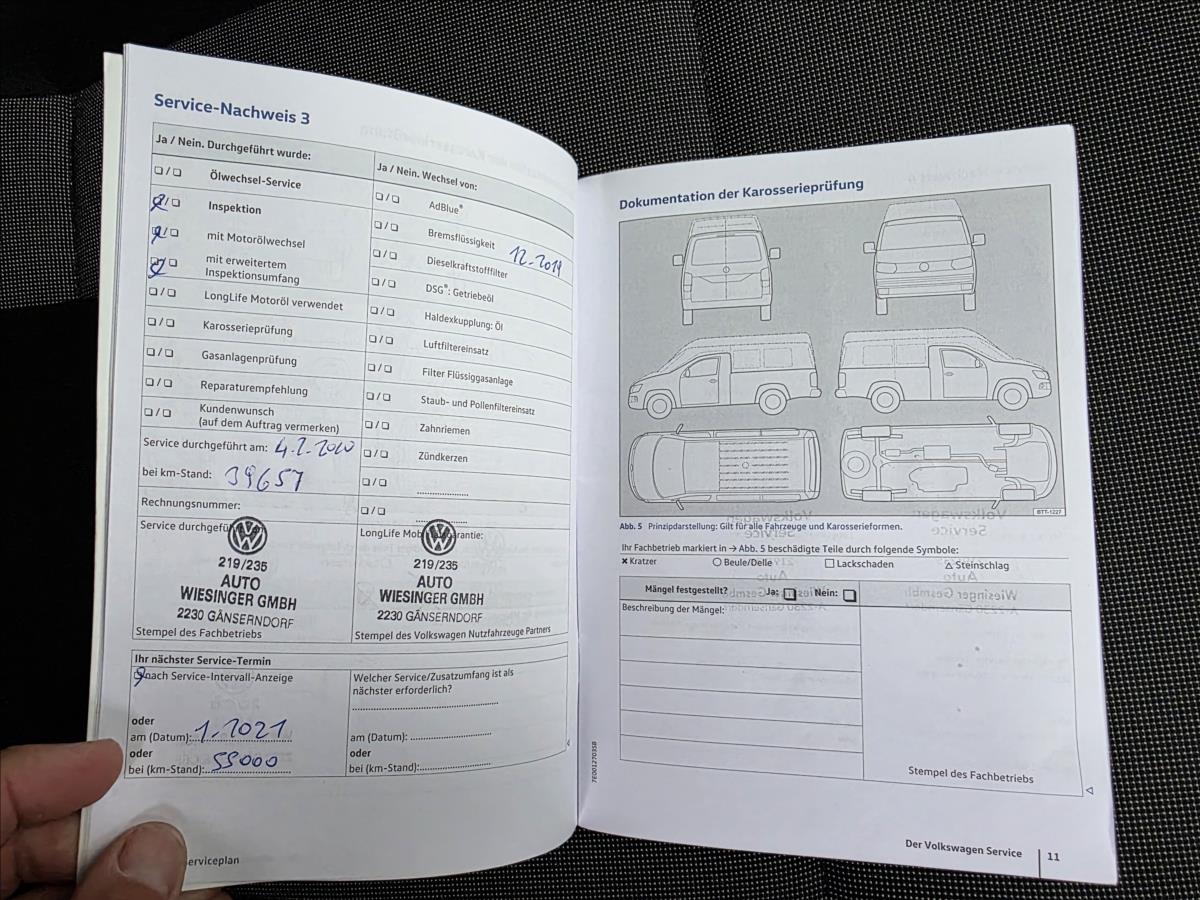 Service-Nachweis 3
Ja / Nein. Durchgeführt wurde:
❏ / ❏ Ölwechsel-Service
❏ / ❏ Inspektion
❏ / ❏ mit Motorölwechsel
❏ / ❏ mit erweitertem
Inspektionsumfang
❏ / ❏ LongLife Motoröl verwendet
❏ / ❏ Karosserieprüfung
❏ / ❏ Gasanlagenprüfung
❏ / ❏ Reparaturempfehlung
❏ / ❏ Kundenwunsch
(auf dem Auftrag vermerken)
Service durchgeführt am: 4.2.2020
bei km-Stand: 39657
Rechnungsnummer:
Service durchgeführt von:
219/235
AUTO
WIESINGER GMBH
2230 GÄNSERNDORF
Stempel des Fachbetriebs
Ja / Nein. Wechsel von:
❏ / ❏ AdBlue®
❏ / ❏ Bremsflüssigkeit 12-2019
❏ / ❏ Dieselkraftstofffilter
❏ / ❏ DSG®: Getriebeöl
❏ / ❏ Haldexkupplung: Öl
❏ / ❏ Luftfiltereinsatz
❏ / ❏ Filter Flüssiggasanlage
❏ / ❏ Staub- und Pollenfiltereinsatz
❏ / ❏ Zahnriemen
❏ / ❏ Zündkerzen
❏ / ❏ ....................
❏ / ❏ ....................
LongLife Mobilitätsgarantie:
219/235
AUTO
WIESINGER GMBH
2230 GÄNSERNDORF
Stempel des Volkswagen Nutzfahrzeuge Partners
Ihr nächster Service-Termin
❏ nach Service-Intervall-Anzeige
oder
am (Datum): 1.2021
oder
bei (km-Stand): 59000
Welcher Service/Zusatzumfang ist als
nächster erforderlich?
am (Datum):
oder
bei (km-Stand):
serviceplan
Dokumentation der Karosserieprüfung
BTT-1227
Abb. 5 Prinzipdarstellung: Gilt für alle Fahrzeuge und Karosserieformen.
Ihr Fachbetrieb markiert in → Abb. 5 beschädigte Teile durch folgende Symbole:
✖ Kratzer ○ Beule/Delle □ Lackschaden △ Steinschlag
Mängel festgestellt? Ja: ❏ Nein: ❏
Beschreibung der Mängel:
Stempel des Fachbetriebs
7E0012703SB
Der Volkswagen Service 11